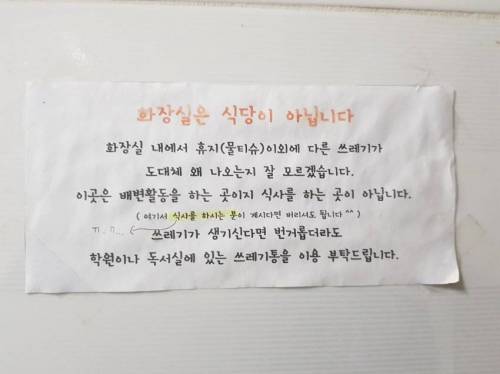 화장실은 식당이 아닙니다
화장실 내에서 휴지(물티슈)이외에 다른 쓰레기가
도대체 왜 나오는지 잘 모르겠습니다.
이곳은 배변활동을 하는 곳이지 식사를 하는 곳이 아닙니다.
( 여기서 식사를 하시는 분이 계시다면 버리셔도 됩니다 ^^ )
쓰레기가 생기신다면 번거롭더라도
학원이나 독서실에 있는 쓰레기통을 이용 부탁드립니다.